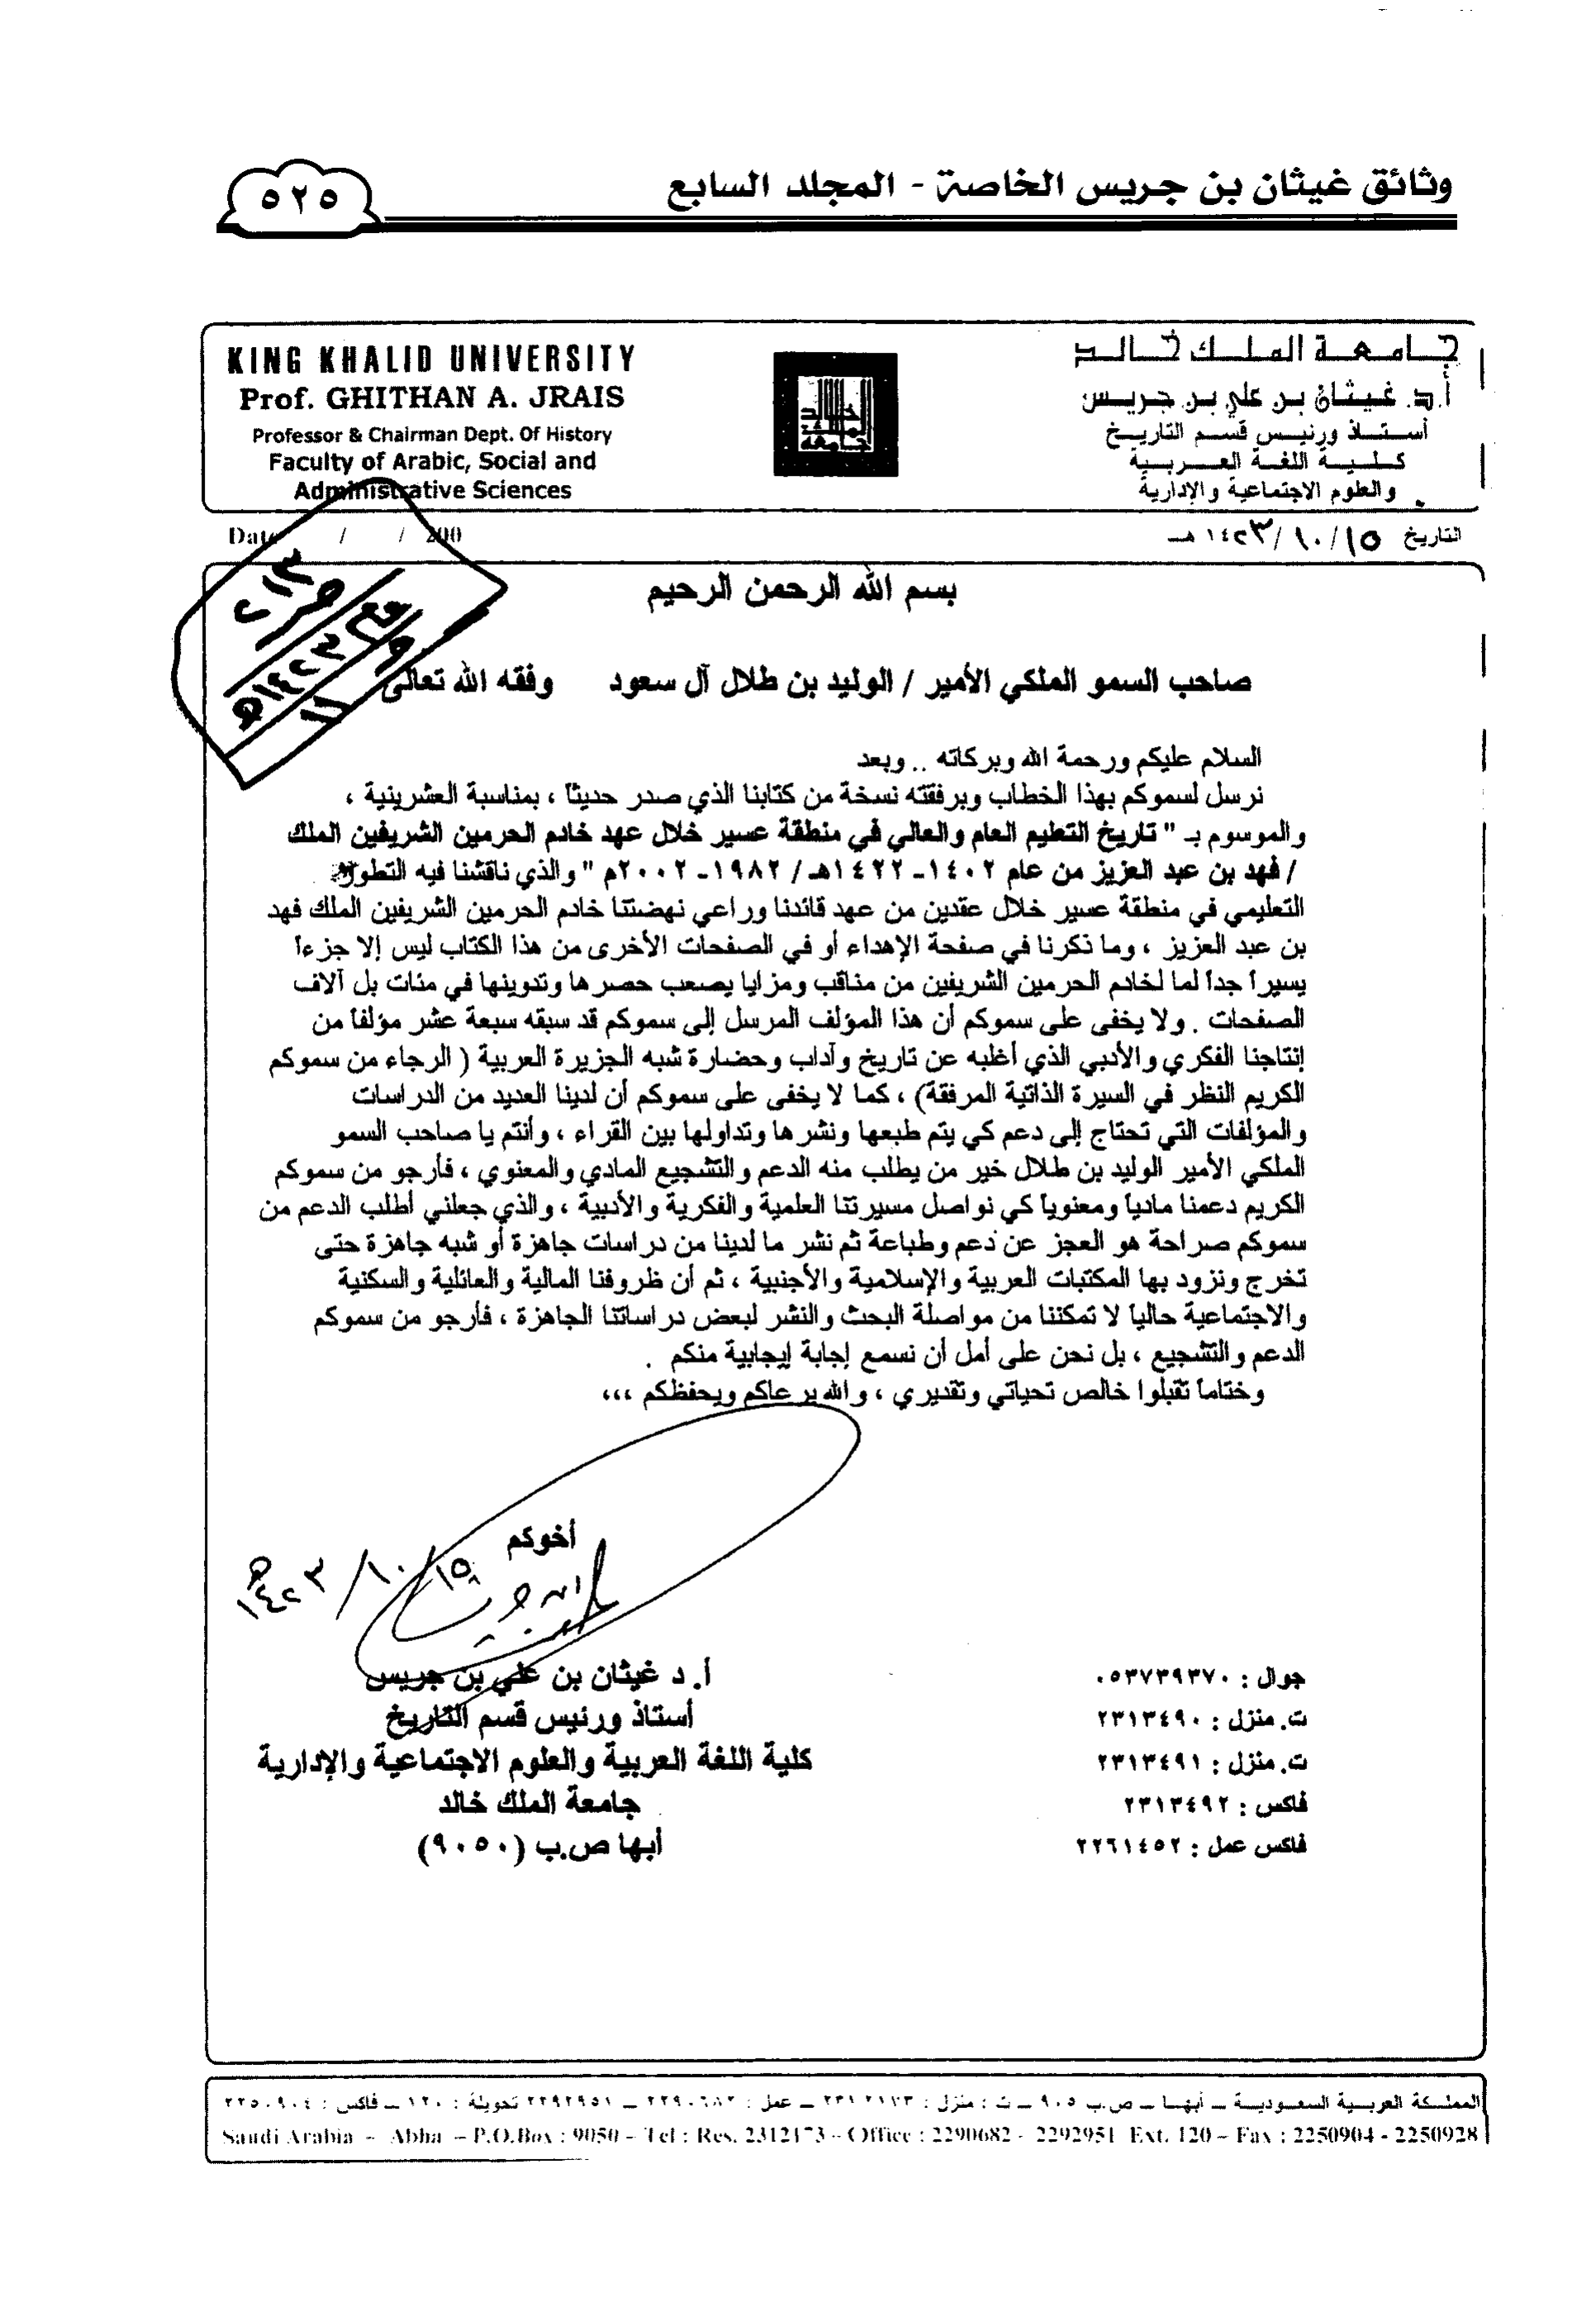 وثائق غيثان بن جريس الخاصة - المجلد السابع
٥٢٥
KING KHALID UNIVERSITY
Prof. GHITHAN A. JRAIS
Professor & Chairman Dept. Of History
Faculty of Arabic, Social and
Administrative Sciences
جامعة الملك خالد
أ.د. غيثان بن علي بن جريس
أستاذ ورئيس قسم التاريخ
كلية اللغة العربية
والعلوم الاجتماعية والإدارية
Date / / 200
التاريخ ١٥/ ١٠/ ١٤٢٣ هـ
بسم الله الرحمن الرحيم
صاحب السمو الملكي الأمير / الوليد بن طلال آل سعود وفقه الله تعالى
السلام عليكم ورحمة الله وبركاته .. وبعد
نرسل لسموكم بهذا الخطاب وبرفقته نسخة من كتابنا الذي صدر حديثاً ، بمناسبة العشرينية ،
والموسوم بـ " تاريخ التعليم العام والعالي في منطقة عسير خلال عهد خادم الحرمين الشريفين الملك
/ فهد بن عبد العزيز من عام ١٤٠٢- ١٤٢٢هـ / ١٩٨٢- ٢٠٠٢م " والذي ناقشنا فيه التطور
التعليمي في منطقة عسير خلال عقدين من عهد قائدنا وراعي نهضتنا خادم الحرمين الشريفين الملك فهد
بن عبد العزيز ، وما ذكرنا في صفحة الإهداء أو في الصفحات الأخرى من هذا الكتاب ليس إلا جزءاً
يسيراً جداً لما لخادم الحرمين الشريفين من مناقب ومزايا يصعب حصرها وتدوينها في مئات بل آلاف
الصفحات . ولا يخفى على سموكم أن هذا المؤلف المرسل إلى سموكم قد سبقه سبعة عشر مؤلفاً من
إنتاجنا الفكري والأدبي الذي أغلبه عن تاريخ وآداب وحضارة شبه الجزيرة العربية ( الرجاء من سموكم
الكريم النظر في السيرة الذاتية المرفقة) ، كما لا يخفى على سموكم أن لدينا العديد من الدراسات
والمؤلفات التي تحتاج إلى دعم كي يتم طبعها ونشرها وتداولها بين القراء ، وأنتم يا صاحب السمو
الملكي الأمير الوليد بن طلال خير من يطلب منه الدعم والتشجيع المادي والمعنوي ، فأرجو من سموكم
الكريم دعمنا مادياً ومعنوياً كي نواصل مسيرتنا العلمية والفكرية والأدبية ، والذي جعلني أطلب الدعم من
سموكم صراحة هو العجز عن دعم وطباعة ثم نشر ما لدينا من دراسات جاهزة أو شبه جاهزة حتى
تخرج ونزود بها المكتبات العربية والإسلامية والأجنبية ، ثم أن ظروفنا المالية والعائلية والسكنية
والاجتماعية حالياً لا تمكننا من مواصلة البحث والنشر لبعض دراساتنا الجاهزة ، فأرجو من سموكم
الدعم والتشجيع ، بل نحن على أمل أن نسمع إجابة إيجابية منكم .
وختاماً تقبلوا خالص تحياتي وتقديري ، والله يرعاكم ويحفظكم ،،،
أخوكم
١٥/ ١٠/ ١٤٢٣هـ
أ. د غيثان بن علي بن جريس
أستاذ ورئيس قسم التاريخ
كلية اللغة العربية والعلوم الاجتماعية والإدارية
جامعة الملك خالد
أبها ص.ب (٩٠٥٠)
جوال : ٠٥٣٧٣٩٣٧٠
ت. منزل : ٢٣١٣٤٩٠
ت. منزل : ٢٣١٣٤٩١
فاكس : ٢٣١٣٤٩٢
فاكس عمل : ٢٢٦١٤٥٢
المملكة العربية السعودية – أبها – ص.ب ٩٠٥ – ت : منزل : ٢٣١٢١٧٣ – عمل : ٢٢٩٠٦٨٢ – ٢٢٩٢٩٥١ تحويلة : ١٢٠ – فاكس : ٢٢٥٠٩٠٤
Saudi Arabia – Abha – P.O.Box : 9050 – Tel : Res. 2312173 – Office : 2290682 - 2292951 Ext. 120 – Fax : 2250904 - 2250928